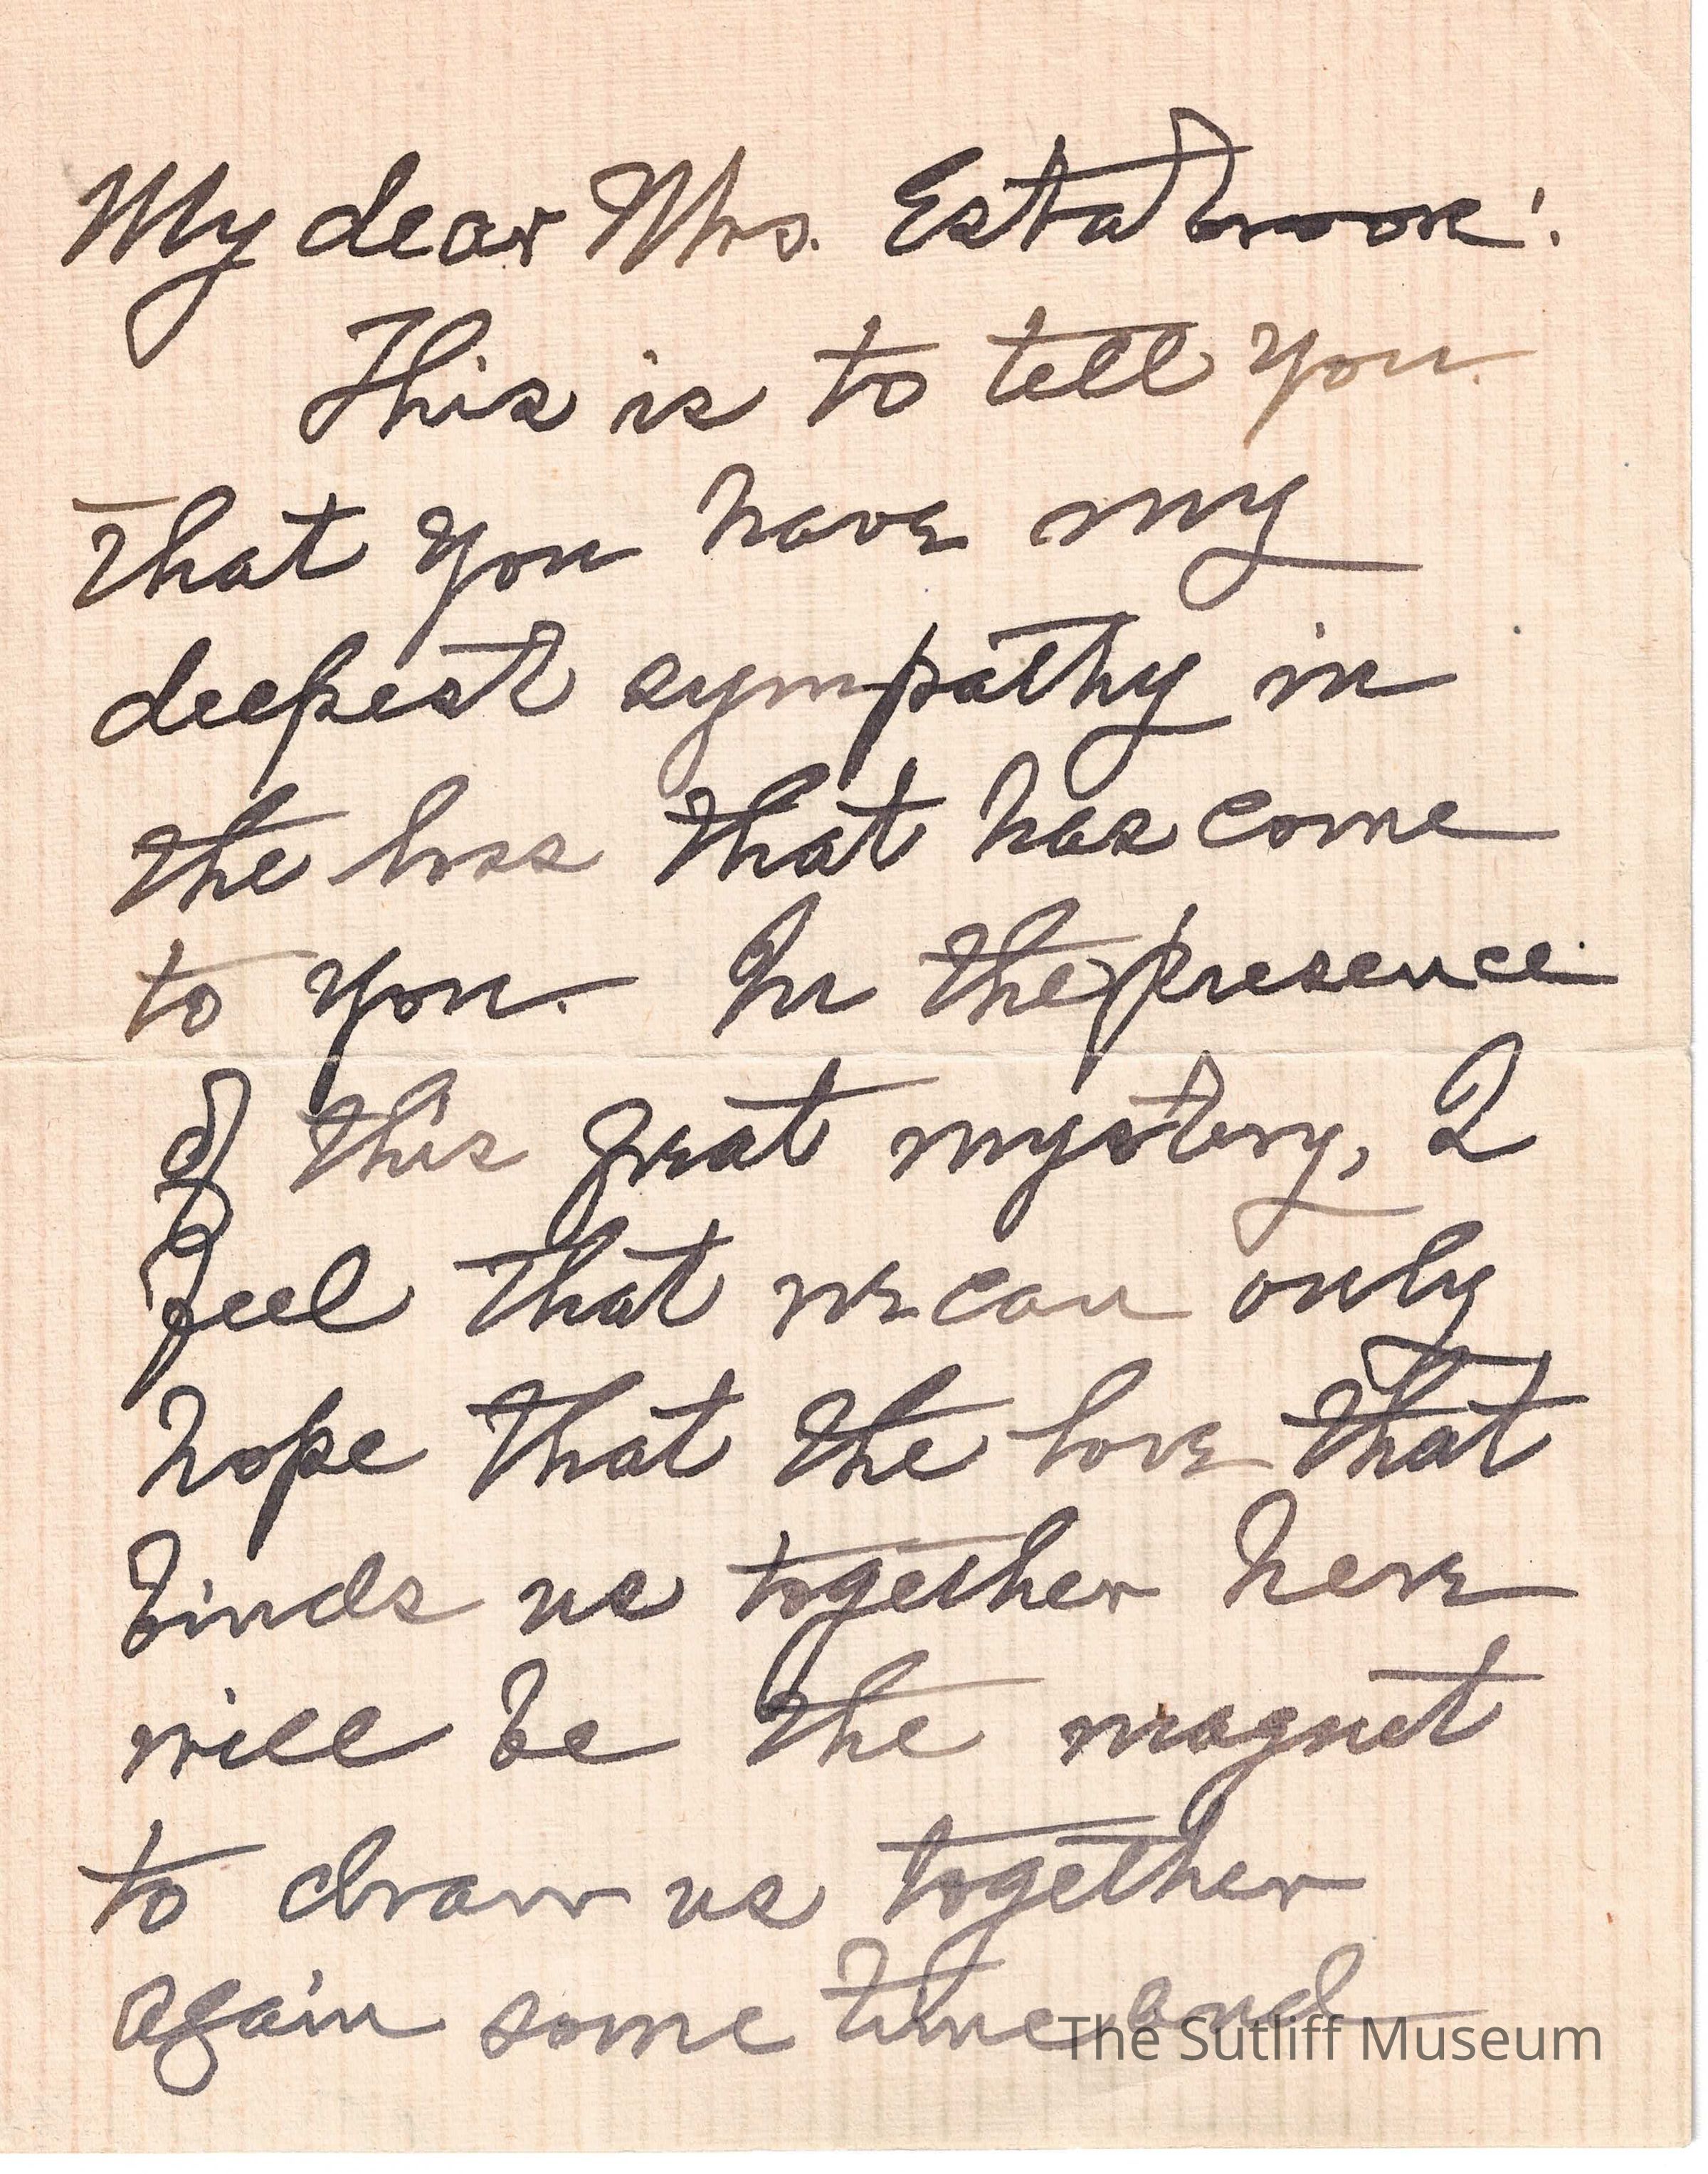 My dear Mrs. Estabrook:
This is to tell you
that you have my
deepest sympathy in
the loss that has come
to you. In the presence
of this great mystery, I
feel that we can only
hope that the love that
binds us together here
will be the magnet
to draw us together
again some time and
The Sutliff Museum